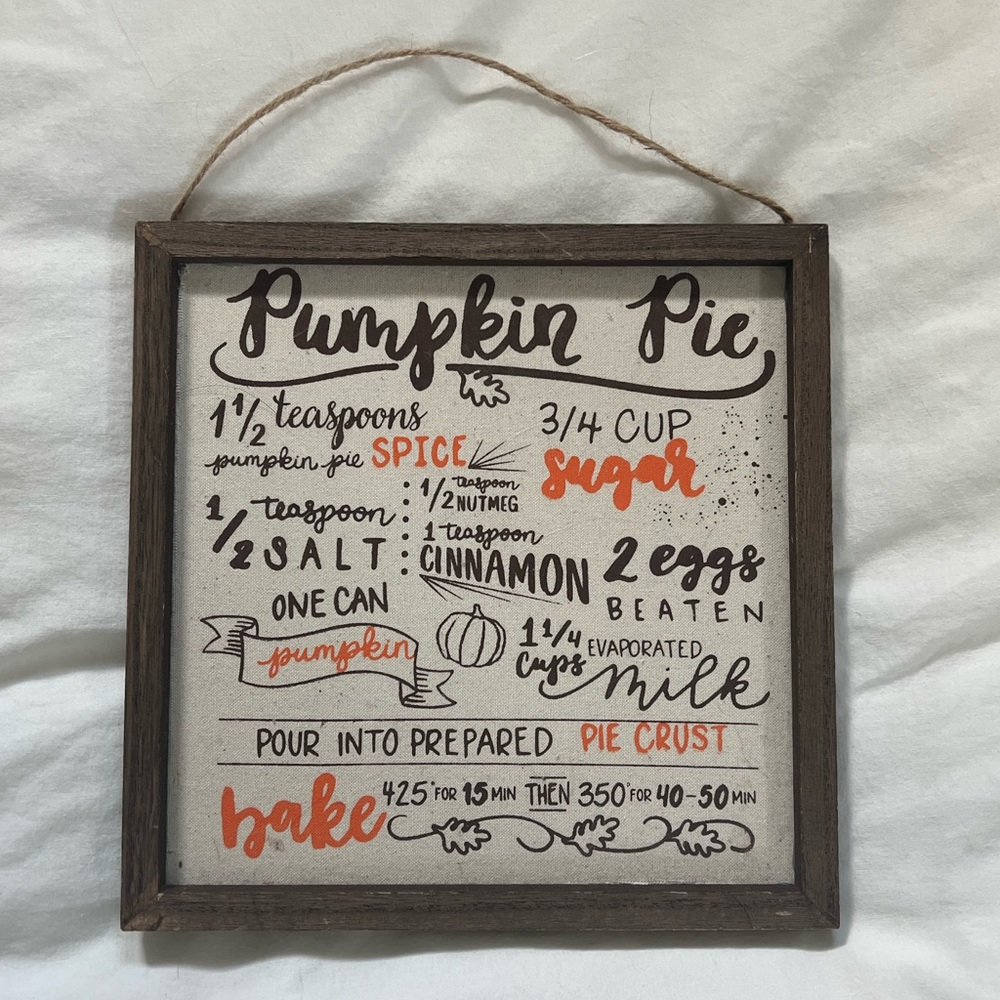 Pumpkin Pie
1 1/2 teaspoons
pumpkin pie SPICE
3/4 CUP
sugar
1/2 teaspoon
SALT
1/2 teaspoon
NUTMEG
1 teaspoon
CINNAMON
2 eggs
BEATEN
ONE CAN
pumpkin
1 1/4
Cups
EVAPORATED
milk
POUR INTO PREPARED PIE CRUST
bake 425° FOR 15 MIN THEN 350° FOR 40-50 MIN